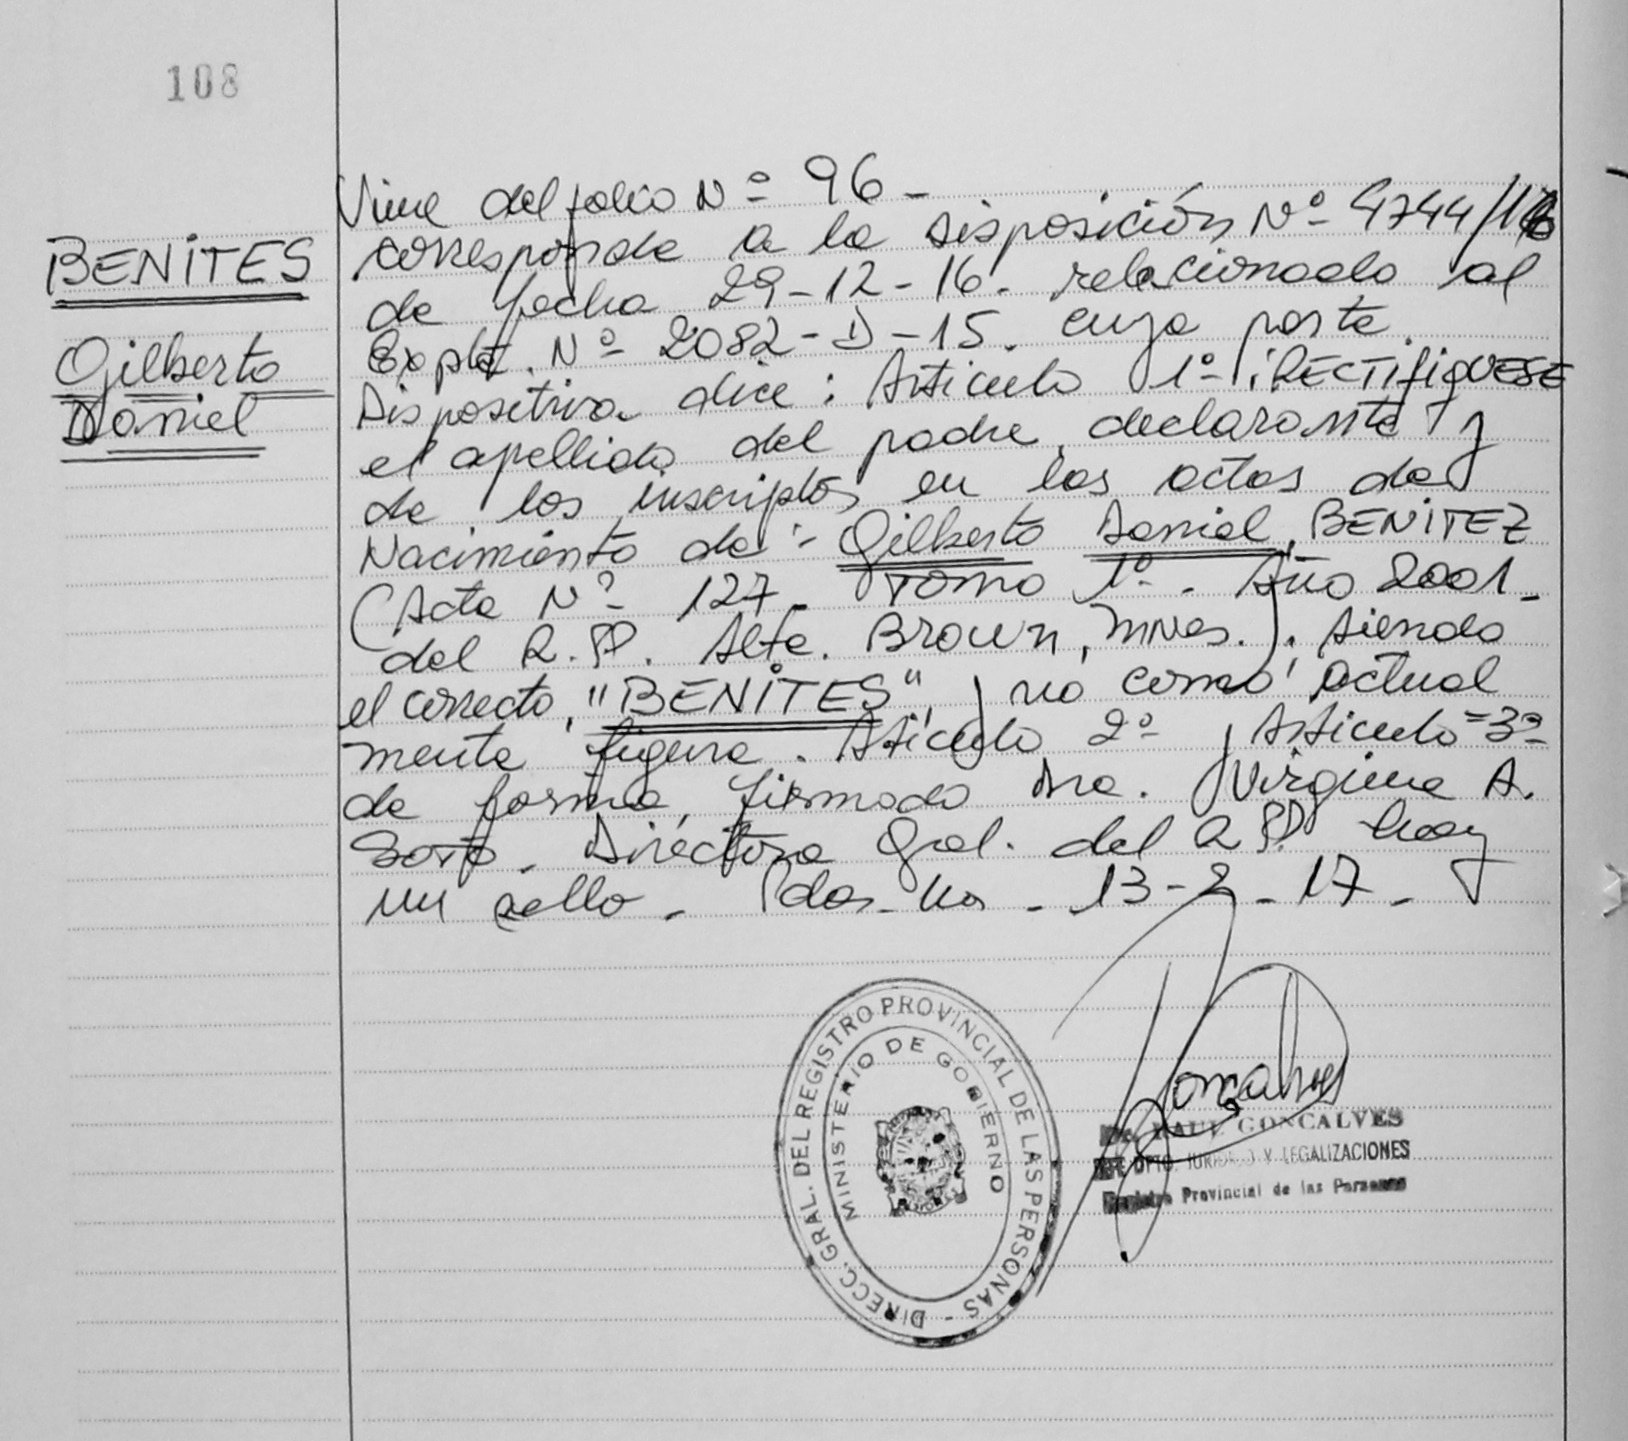 108
BENITES
Gilberto
Daniel
Viene del folio Nº 96 -
corresponde a la disposición Nº 4744/16
de fecha 29-12-16. relacionado al
Expte. Nº 2082-D-15. cuya parte
Dispositiva dice: Articulo 1º: RECTIFIQUESE
el apellido del padre, declarante y
de los inscriptos en las actas de
Nacimiento de:- Gilberto Daniel, BENITEZ
(Acta Nº 127 - Tomo 1º - Año 2001 -
del R.P. Alte. Brown, Mnes.). siendo
el correcto, "BENITES", y no como actual
mente figura. Articulo 2º y Articulo 3º
de forma, firmado Dra. Virginia A.
Soto. Directora Gral. del R.P. hay
un sello - Pdas. Mns - 13-2-17 -
DIRECC. GRAL. DEL REGISTRO PROVINCIAL DE LAS PERSONAS -
MINISTERIO DE GOBIERNO
RAUL GONCALVES
JEFE DPTO. JURIDICO Y LEGALIZACIONES
Registro Provincial de las Personas